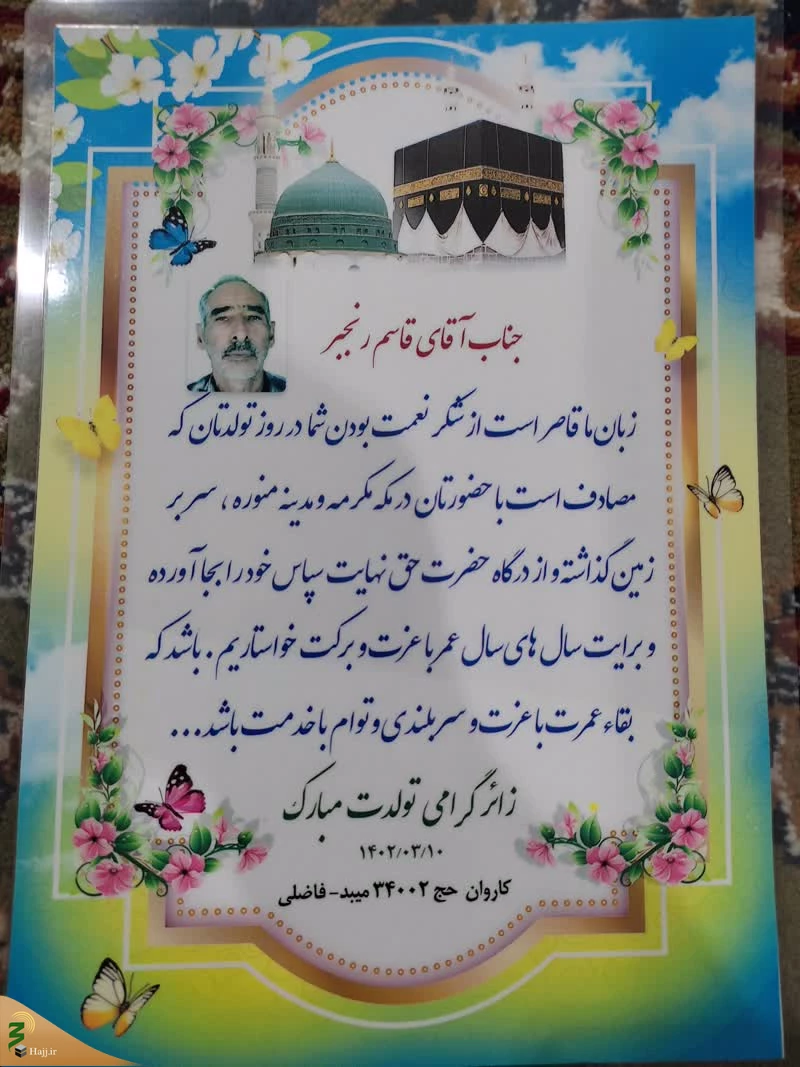 جناب آقای قاسم رنجبر
زبان ما قاصر است از شکر نعمت بودن شما در روز تولدتان که
مصادف است با حضورتان در مکه مکرمه و مدینه منوره ، سر بر
زمین گذاشته و از درگاه حضرت حق نهایت سپاس خود را بجا آورده
و برایت سال های سال عمر با عزت و برکت خواستاریم . باشد که
بقاء عمرت با عزت و سربلندی و توام با خدمت باشد...
زائر گرامی تولدت مبارک
۱۴۰۲/۰۳/۱۰
کاروان حج ۳۴۰۰۲ میبد- فاضلی
Hajj.ir